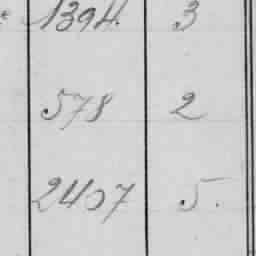 1394. 3
578 2
2407 5.